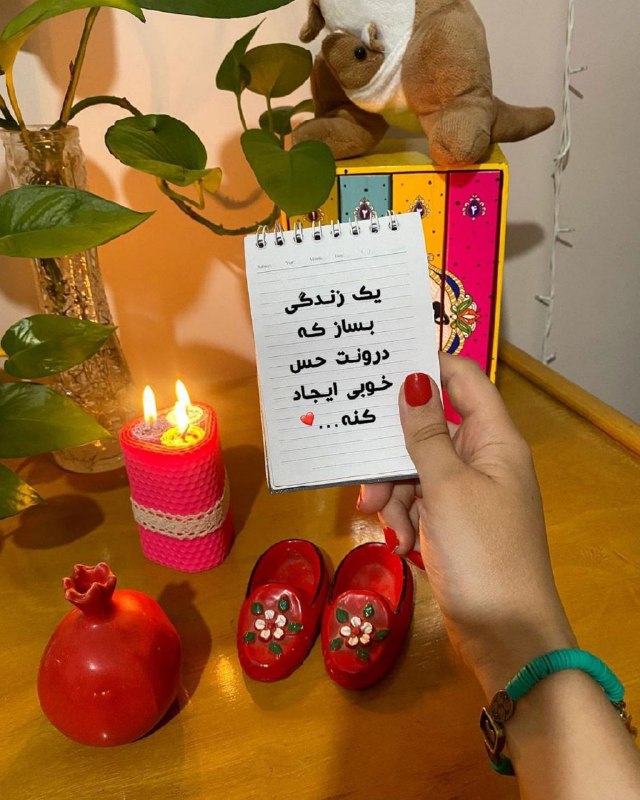 یک زندگی
بساز که
درونت حس
خوبی ایجاد
کنه...❤️